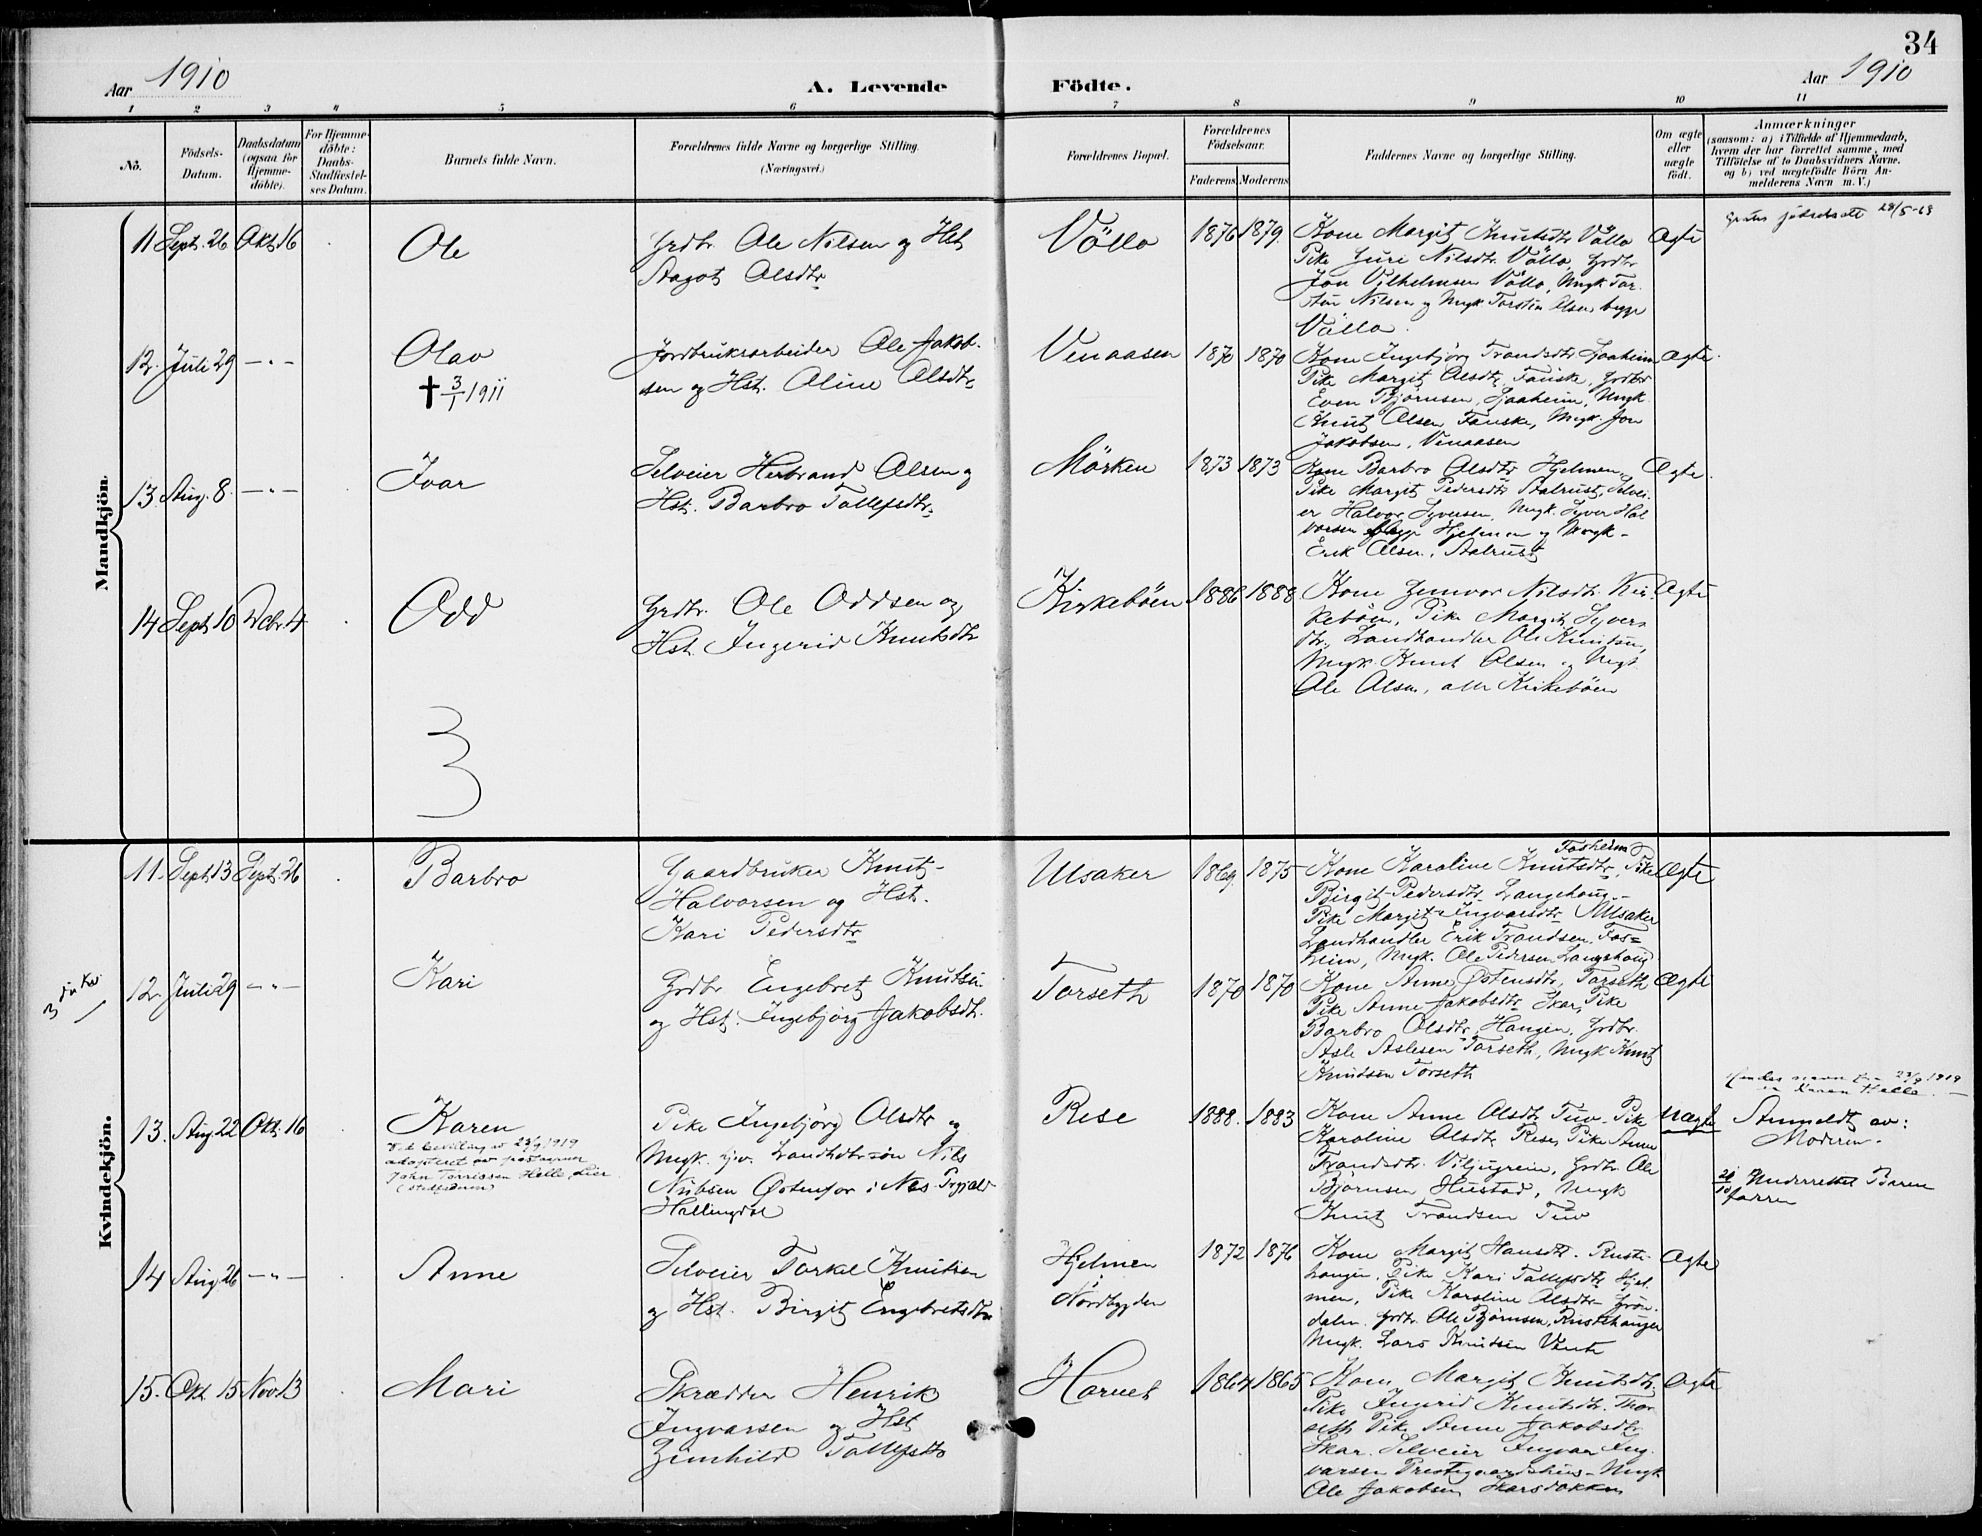 34
Aar 1910
A. Levende Födte.
Aar 1910
1 2 3 4 5 6 7 8 9 10 11
No.
Födsels-
Datum.
Daabsdatum
(ogsaa for
Hjemme-
döbte).
For Hjemme-
döbte:
Daabs-
Stadfæstel-
ses Datum.
Barnets fulde Navn.
Forældrenes fulde Navne og borgerlige Stilling.
(Næringsvei.)
Forældrenes Bopæl.
Forældrenes
Födselsaar.
Faderens. Moderens.
Faddernes Navne og borgerlige Stilling.
Om ægte
eller
uægte
födt.
Anmærkninger
(saasom: a) i Tilfælde af Hjemmedaab,
hvem der har forrettet samme, med
Tilföielse af to Daabsvidners Navne.
og b) ved uægtefödte Börn An-
melderens Navn m. V.)
Mandkjön.
11 Sept. 26 Okt. 16
Ole
Grdbr. Ole Nilsen og Hst
Aagot Olsdtr
Völlo
1876 1879.
Kone Margit Knutsdtr Völlo
Pike Guri Nilsdtr. Völlo, Grdbr
Jon Vilhelmsen Völlo, Ungk. Tor-
stein Nilsen og Ungk Torstein Olsen begge
Völlo.
Ægte
födselsatt 28/5-63
12. Juli 29 -"-
Olav
✝ 3/1 1911
Jordbruksarbeider Ole Jakob-
sen og Hst. Aline Olsdtr
Venaasen
1870 1870
Kone Ingebjörg Trondsdtr Ljaaheim
Pike Margit Olsdtr. Fauske, Grdbr
Even Björnsen, Ljaaheim, Ungk.
Knut Olsen Fauske, Ungk. Jon
Jakobsen, Venaasen
Ægte.
13. Aug. 8. -"-
Ivar
Selveier Herbrand Olsen og
Hst. Barbro Tollefsdtr.
Mörken
1873 1873
Kone Barbro Olsdtr Hjelmen,
Pike Margit Pedersdtr Aalrust, Selvei-
er Halvor Syversen, Ungk. Syver Hal
vorsen begge Hjelmen og Ungk-
Erik Olsen, Aalrust
Ægte.
14 Sept 10 Dcbr. 4
Odd
Grdbr. Ole Oddsen og
Hst. Ingerid Knutsdtr
Kirkeböen
1886 1888
Kone Gunvor Nilsdtr. Kir-
keböen, Pike Margit Syvers
dtr., Landhandler Ole Knutsen,
Ungk. Knut Olsen og Ungk.
Ole Olsen, alle Kirkeböen
Ægte
Kvindekjön.
11. Sept 13 Sept. 26
Barbro
Gaardbruker Knut
Halvorsen og Hst.
Kari Pedersdtr
Ulsaker
1869. 1875
Fosheim
Kone Karoline Knutsdtr, Pike
Birgit Pedersdtr Langehaug
Pike Margit Ingvarsdtr Ulsaker
Landhandler Erik Trondsen, Fos-
heim, Ungk. Ole Pedersen Langehaug
Ægte
3
12. Juli 29 -"-
Kari
Grdbr Engebret Knutsen
og Hst. Ingebjörg Jakobsdtr.
Torseth
1870 1870
Kone Anne Østensdtr, Torseth
Pike Anne Jakobsdtr Skar, Pike
Barbro Olsdtr, Haugen, Grdbr.
Asle Aslesen Torseth, Ungk Knut
Knudsen Torseth
Ægte
13. Aug. 22 Okt. 16
Karen
Ved bevilling av 23/9 1919
adopteret av postaapner
John Torrissen Helle, Lier
Pike Ingebjörg Olsdtr og
Ungk. Landhdlrsön Nils
Nubsen Østenfor i Nes
Hallingdal
Rese
1888. 1883
Kone Anne Olsdtr Tuv. Pike
Karoline Olsdtr Rese, Pike Anne
Trondsdtr. Viljugrein, Grdbr. Ole
Björnsen Hustad, Ungk
Knut Trondsen Tuv
Uægte
Hendes navn fra 23/9 1919
er Karen Helle.
Anmeldt av:
Moderen.
Underrettet Barne
farren
14 Aug. 26 -"-
Anne
Selveier Torkel Knutsen
og Hst. Birgit Engebretsdtr
Hjelmen
Nordbygden
1872 1876
Kone Margit Hansdtr. Ruste-
haugen, Pike Kari Tollefsdtr Hjel-
men, Pike Karoline Olsdtr Grön-
dalen, Grdbr. Ole Björnsen, Rustehaugen
Ungk. Lars Knutsen
Ægte
15. Okt. 15 Nov 13
Mari
Skrædder Henrik
Ingvarsen og Hst
Gunhild Tollefsdtr
Hornet
1864 1865
Kone Margit Knutsdtr.
Pike Ingerid Knutsdtr. Thor-
seth Pike Anne Jakobsdtr
Skar. Selveier Ingvar Ing-
varsen Ungk
Ole Jakobsen Skarsdokken
Ægte